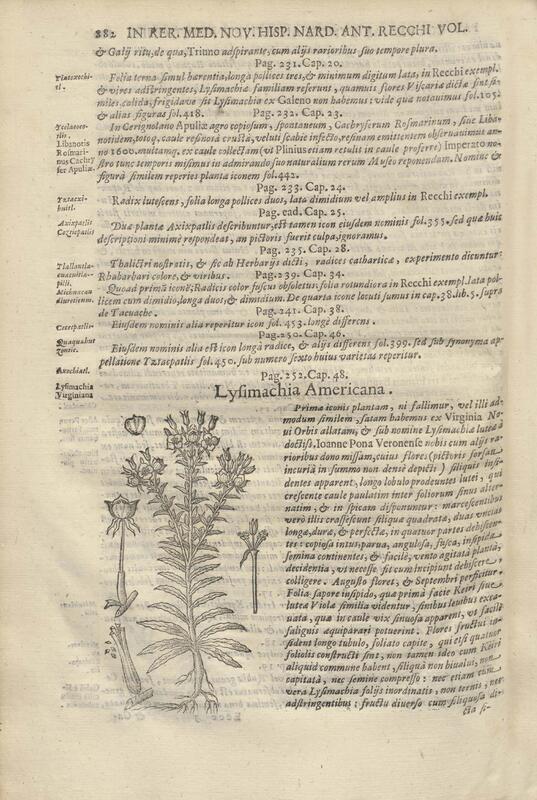 882 IN RER. MED. NOV. HISP. NARD. ANT. RECCHI VOL.
& Galij ritu, de qua, Triuno adspirante, cum alijs rarioribus suo tempore plura.
Pag. 231. Cap. 20.
Folia terna simul hærentia, longa pollices tres, & minimum digitum lata, in Recchi exempl.
& vires adstringentes, Lysimachiæ familiam referunt, quamuis flores Viscariæ dicta sint si-
miles. calida, frigidave sit Lysimachia ex Galeno non habemus: vide quæ notauimus fol. 105.
& alias figuras fol. 418. Pag. 232. Cap. 23.
Libanotis
Rosmari-
nus Cachry
fer Apuliæ.
In Cerignolano Apuliæ agro copiosum, spontaneum, Cachryferum Rosmarinum, siue Liba-
notidem, totoq. caule resinosa crusta, veluti scabie infecto, resinam emittentem obseruauimus an-
no 1600. multamq. ex caule collectam (vt Plinius etiam retulit in caule proferre) Imperato no-
stro tunc temporis misimus in admirando suo naturalium rerum Museo reponendam. Nomine &
figura similem reperies planta iconem fol. 442.
Pag. 233. Cap. 24.
Radix lutescens, folia longa pollices duos, lata dimidium vel amplius in Recchi exempl.
Pag. ead. Cap. 25.
Axixpatlis
Duæ plantæ Axixpatlis describuntur, est tamen icon eiusdem nominis fol. 355. sed quæ huic
descriptioni minimè respondeat, an pictoris fuerit culpa, ignoramus.
Pag. 235. Cap. 28.
Thalictri nostratis, & sic ab Herbarijs dicti, radices catharticæ, experimento dicuntur
Rhabarbari colore, & viribus. Pag. 239. Cap. 34.
Quoad primā iconē; Radicis color fuscus obsoletus. folia rotundiora in Recchi exempl. lata pol-
licem cum dimidio, longa duos, & dimidium. De quarta icone locuti sumus in cap. 38. lib. 5. supra
de Tacuache. Pag. 241. Cap. 38.
Eiusdem nominis alia reperitur icon fol. 453. longè differens.
Pag. 250. Cap. 46.
Eiusdem nominis alia est icon longa radice, & alijs differens fol. 399. sed sub synonyma ap-
pellatione Tzræpatlis fol. 450. sub numero sexto huius varietas reperitur.
Pag. 252. Cap. 48.
Lysimachia
Virginiana
Lysimachia Americana.
Primæ iconis plantam, ni fallimur, vel illi ad-
modum similem, satam habemus ex Virginia No-
ui Orbis allatam, & sub nomine Lysimachiæ luteæ à
doctiss. Ioanne Pona Veronense nobis cum alijs ra-
rioribus dono missam, cuius flores (pictoris forsan
incuriâ in summo non densè depicti) siliquis insi-
dentes apparent, longo lobulo prodeuntes lutei, qui
crescente caule paulatim inter foliorum sinus alter-
natim, & in spicam disponuntur: marcescentibus
verò illis crassescunt siliquæ quadratæ, duas vncias
longæ, duræ, & perfectæ, in quatuor partes debiscen-
tes: copiosa intus, parua, angulosa, fusca, insipida
semina continentes, & facilè, vento agitata planta,
decidentia, vt necesse sit cum incipiunt debiscere,
colligere. Augusto floret, & Septembri perficitur.
Folia sapore insipido, quæ prima facie Keiri siue
luteæ Violæ similia videntur, sinibus leuibus exca-
uata, quæ in caule vix sinuosa apparent, vt facilè
salignis æquiparari potuerint. Flores fructui in-
sident longo tubulo, foliato capite, qui etsi quatuor
foliolis constructi sint, non tamen ideo cum Keiri
aliquid commune habent, siliquâ non biualui, non
capitatâ, nec semine compresso: nec etiam cum
vera Lysimachia folijs inordinatis, non ternis, nec
adstringentibus: fructu diuerso cum siliquosa di-
cta si-